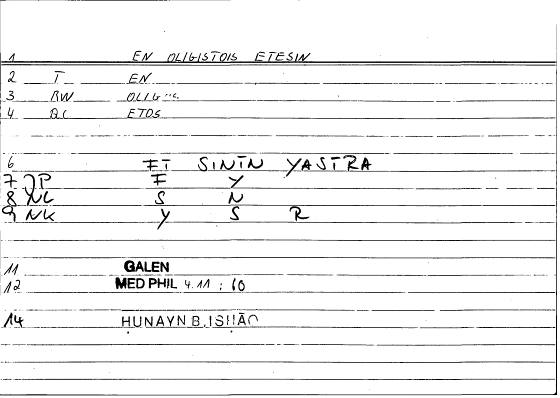 1 EN OLIGISTOIS ETESIN
2 T EN
3 RW
4 QC ETOS
6 FI SINĪN YASĪRA
7 JP F Y
8 NL S N
9 NK Y S R
11 GALEN
12 MED PHIL 4.11 : 10
14 HUNAYN B. ISḤĀQ